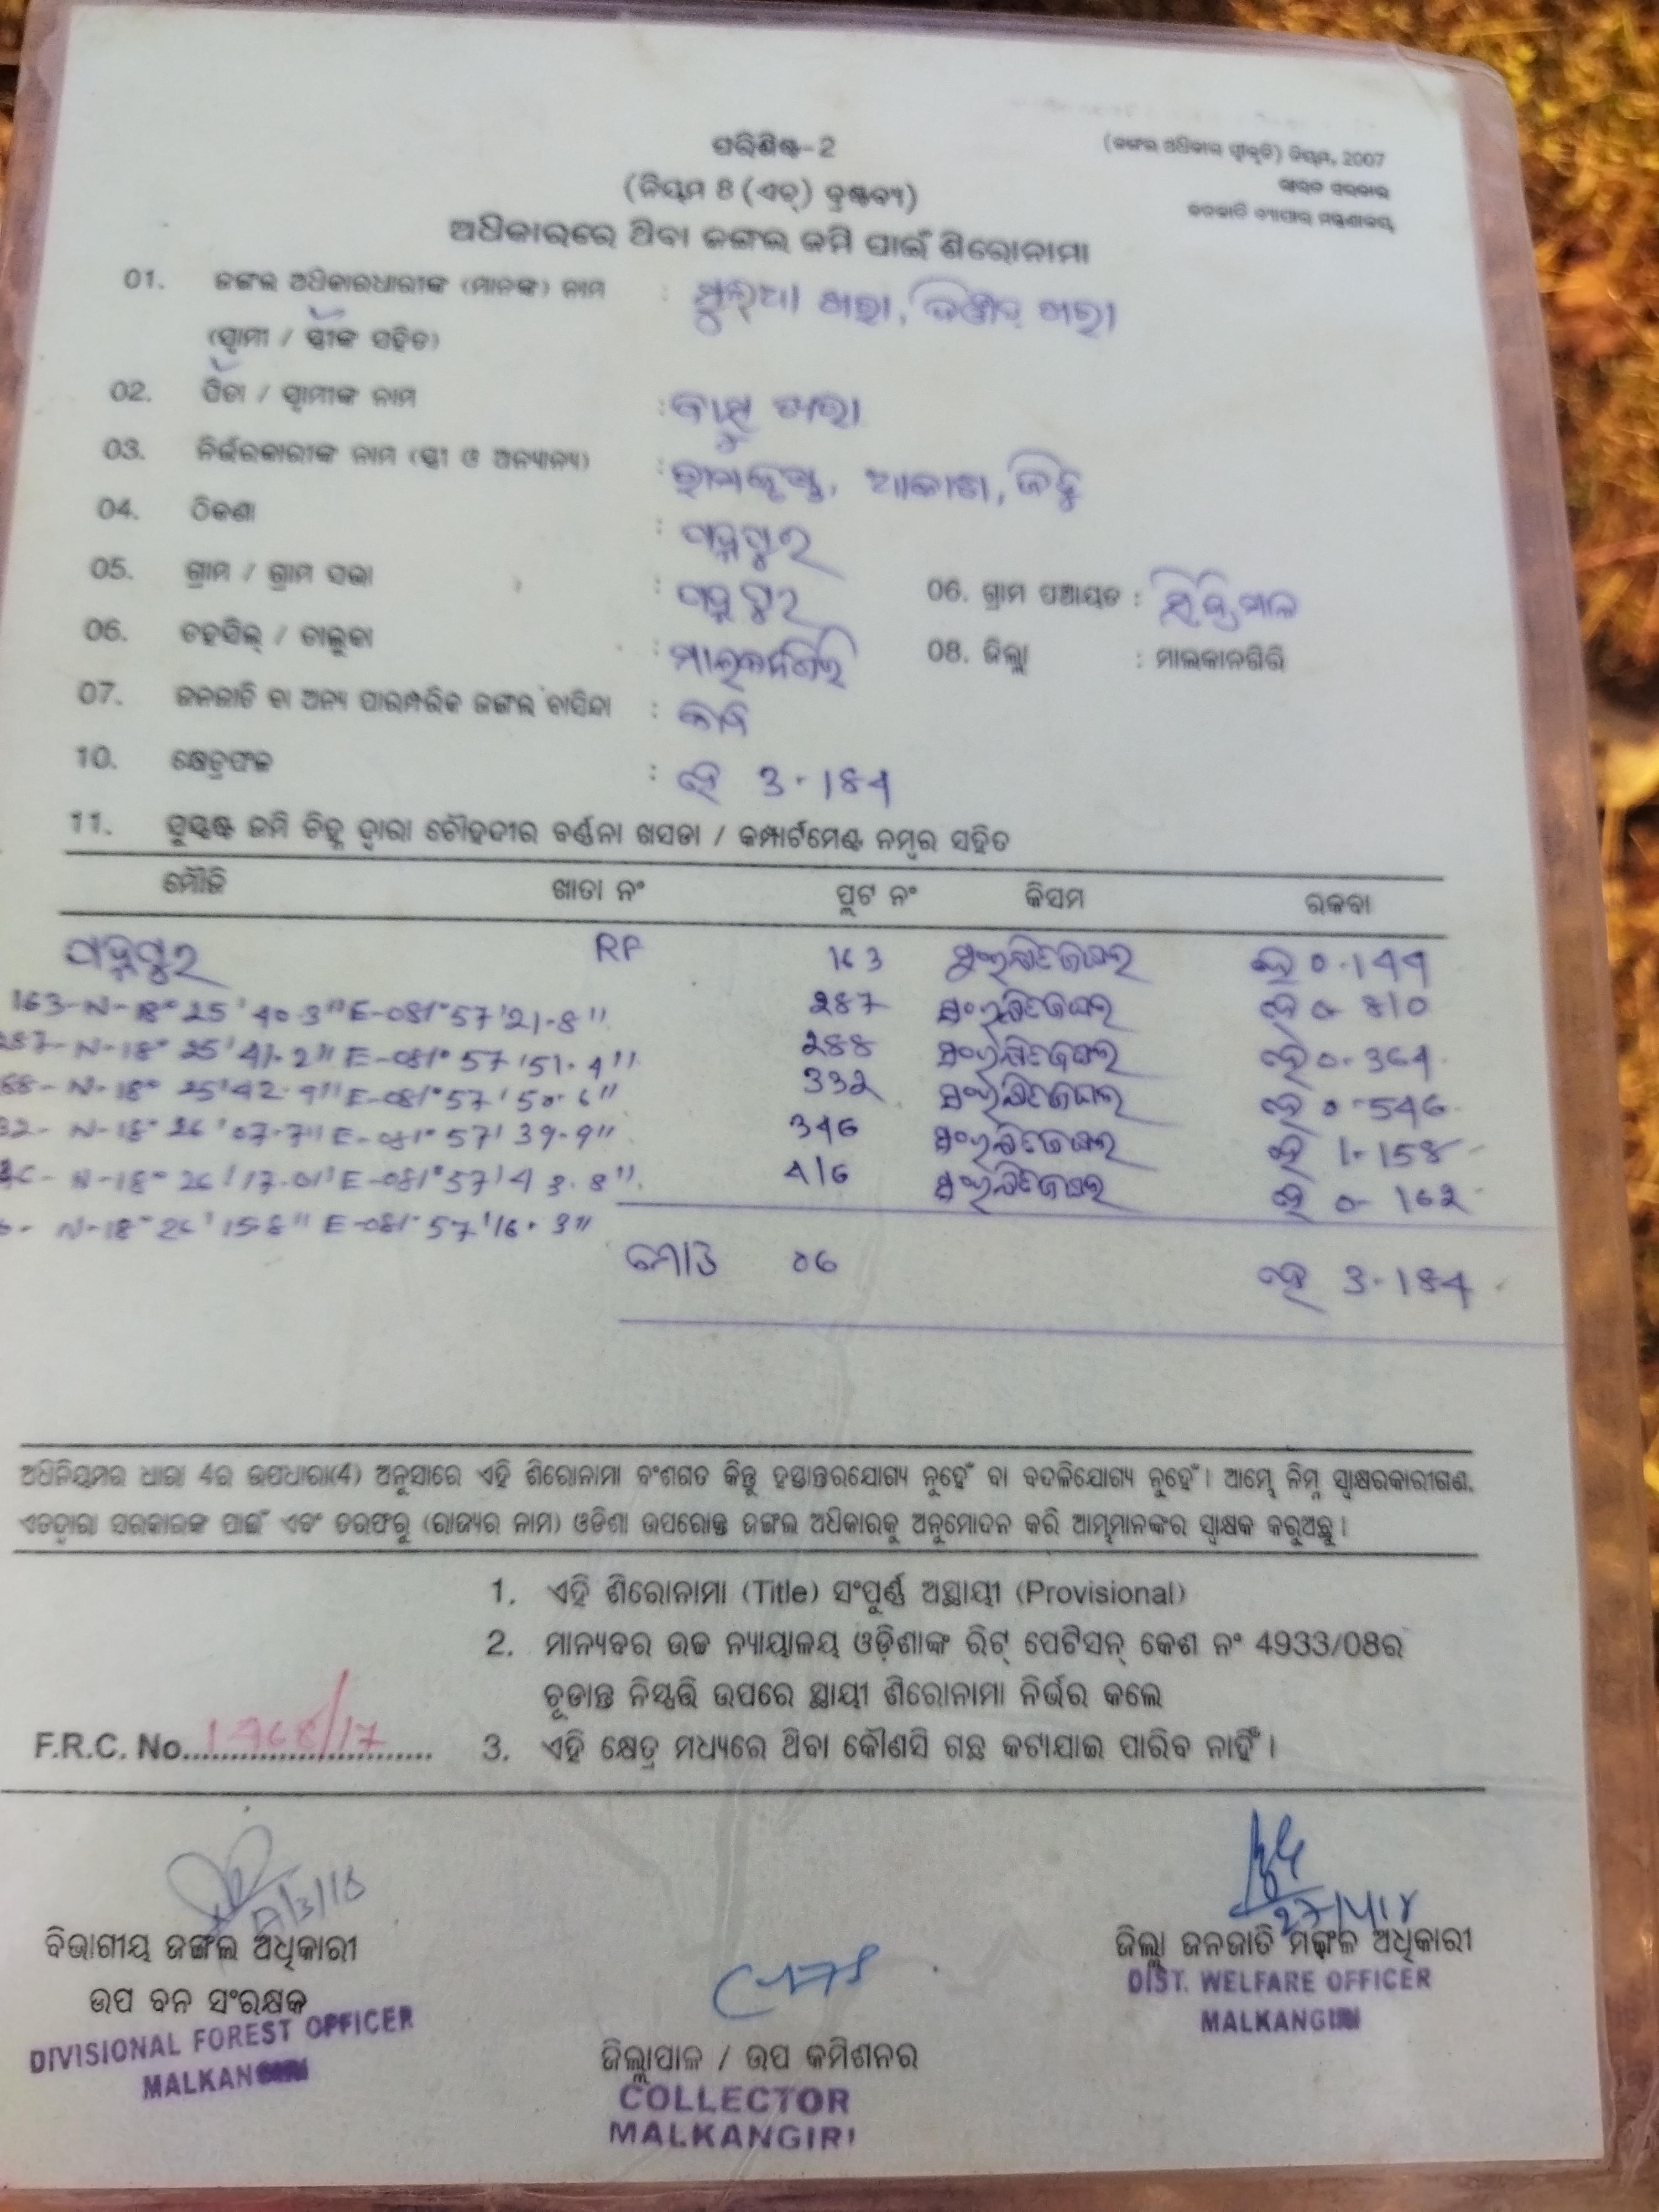 ପରିଶିଷ୍ଟ-2
(ଜଙ୍ଗଲ ଅଧିକାର ସ୍ୱୀକୃତି) ନିୟମ, 2007
(ନିୟମ 8 (ଏଚ୍) ଦ୍ରଷ୍ଟବ୍ୟ)
ଭାରତ ସରକାର
ଜନଜାତି ବ୍ୟାପାର ମନ୍ତ୍ରଣାଳୟ
ଅଧିକାରରେ ଥିବା ଜଙ୍ଗଲ ଜମି ପାଇଁ ଶିରୋନାମା
01. ଜଙ୍ଗଲ ଅଧିକାରଧାରୀଙ୍କ (ମାନଙ୍କ) ନାମ :
(ସ୍ୱାମୀ / ସ୍ତ୍ରୀଙ୍କ ସହିତ)
02. ପିତା / ସ୍ୱାମୀଙ୍କ ନାମ :
03. ନିର୍ଭରକାରୀଙ୍କ ନାମ (ସ୍ତ୍ରୀ ଓ ଅନ୍ୟାନ୍ୟ) : ରାମକୃଷ୍ଣ, ଆକାଶ,
04. ଠିକଣା : ପଦ୍ମପୁର
05. ଗ୍ରାମ / ଗ୍ରାମ ସଭା : ପଦ୍ମପୁର 06. ଗ୍ରାମ ପଞ୍ଚାୟତ :
06. ତହସିଲ୍ / ତାଲୁକା : ମାଲକାନଗିରି 08. ଜିଲ୍ଲା : ମାଲକାନଗିରି
07. ଜନଜାତି ବା ଅନ୍ୟ ପାରମ୍ପରିକ ଜଙ୍ଗଲ ବାସିନ୍ଦା :
10. କ୍ଷେତ୍ରଫଳ : ହେ 3.184
11. ସୁସ୍ପଷ୍ଟ ଜମି ଚିହ୍ନ ଦ୍ୱାରା ଚୌହଦୀର ବର୍ଣ୍ଣନା ଖସଡା / କମ୍ପାର୍ଟମେଣ୍ଟ ନମ୍ବର ସହିତ
ମୌଜି ଖାତା ନଂ ପ୍ଲଟ ନଂ କିସମ ରକବା
ପଦ୍ମପୁର RF 163 ହେ 0.144
163-N-18° 25' 40.3" E-081° 57' 21.8" 287 ହେ 0.810
287-N-18° 25' 41.2" E-081° 57' 51.4" 288 ହେ 0.364
88-N-18° 25' 42.9" E-081° 57' 50.6" 332 ହେ 0.546
32-N-18° 26' 07.7" E-081° 57' 39.9" 346 ହେ 1.158
N-18° 26' 17.0" E-081° 57' 43.8" 416 ହେ 0.162
N-18° 26' 15.8" E-081° 57' 16.3"
ମୋଟ 06 ହେ 3.184
ଅଧିନିୟମର ଧାରା 4ର ଉପଧାରା(4) ଅନୁସାରେ ଏହି ଶିରୋନାମା ବଂଶଗତ କିନ୍ତୁ ହସ୍ତାନ୍ତରଯୋଗ୍ୟ ନୁହେଁ ବା ବଦଳିଯୋଗ୍ୟ ନୁହେଁ । ଆମ୍ଭେ ନିମ୍ନ ସ୍ୱାକ୍ଷରକାରୀଗଣ,
ଏତଦ୍ଵାରା ସରକାରଙ୍କ ପାଇଁ ଏବଂ ତରଫରୁ (ରାଜ୍ୟର ନାମ) ଓଡିଶା ଉପରୋକ୍ତ ଜଙ୍ଗଲ ଅଧିକାରକୁ ଅନୁମୋଦନ କରି ଆମ୍ଭମାନଙ୍କର ସ୍ୱାକ୍ଷକ କରୁଅଛୁ ।
1. ଏହି ଶିରୋନାମା (Title) ସଂପୂର୍ଣ୍ଣ ଅସ୍ଥାୟୀ (Provisional)
2. ମାନ୍ୟବର ଉଚ୍ଚ ନ୍ୟାୟାଳୟ ଓଡ଼ିଶାଙ୍କ ରିଟ୍ ପେଟିସନ୍ କେଶ ନଂ 4933/08ର
ଚୂଡାନ୍ତ ନିସ୍ପତ୍ତି ଉପରେ ସ୍ଥାୟୀ ଶିରୋନାମା ନିର୍ଭର କଲେ
F.R.C. No. 1968/17 3. ଏହି କ୍ଷେତ୍ର ମଧ୍ୟରେ ଥିବା କୌଣସି ଗଛ କଟାଯାଇ ପାରିବ ନାହିଁ ।
ବିଭାଗୀୟ ଜଙ୍ଗଲ ଅଧିକାରୀ
ଉପ ବନ ସଂରକ୍ଷକ
DIVISIONAL FOREST OFFICER
MALKANGIRI
ଜିଲ୍ଲାପାଳ / ଉପ କମିଶନର
COLLECTOR
MALKANGIRI
ଜିଲ୍ଲା ଜନଜାତି ମଙ୍ଗଳ ଅଧିକାରୀ
DIST. WELFARE OFFICER
MALKANGIRI